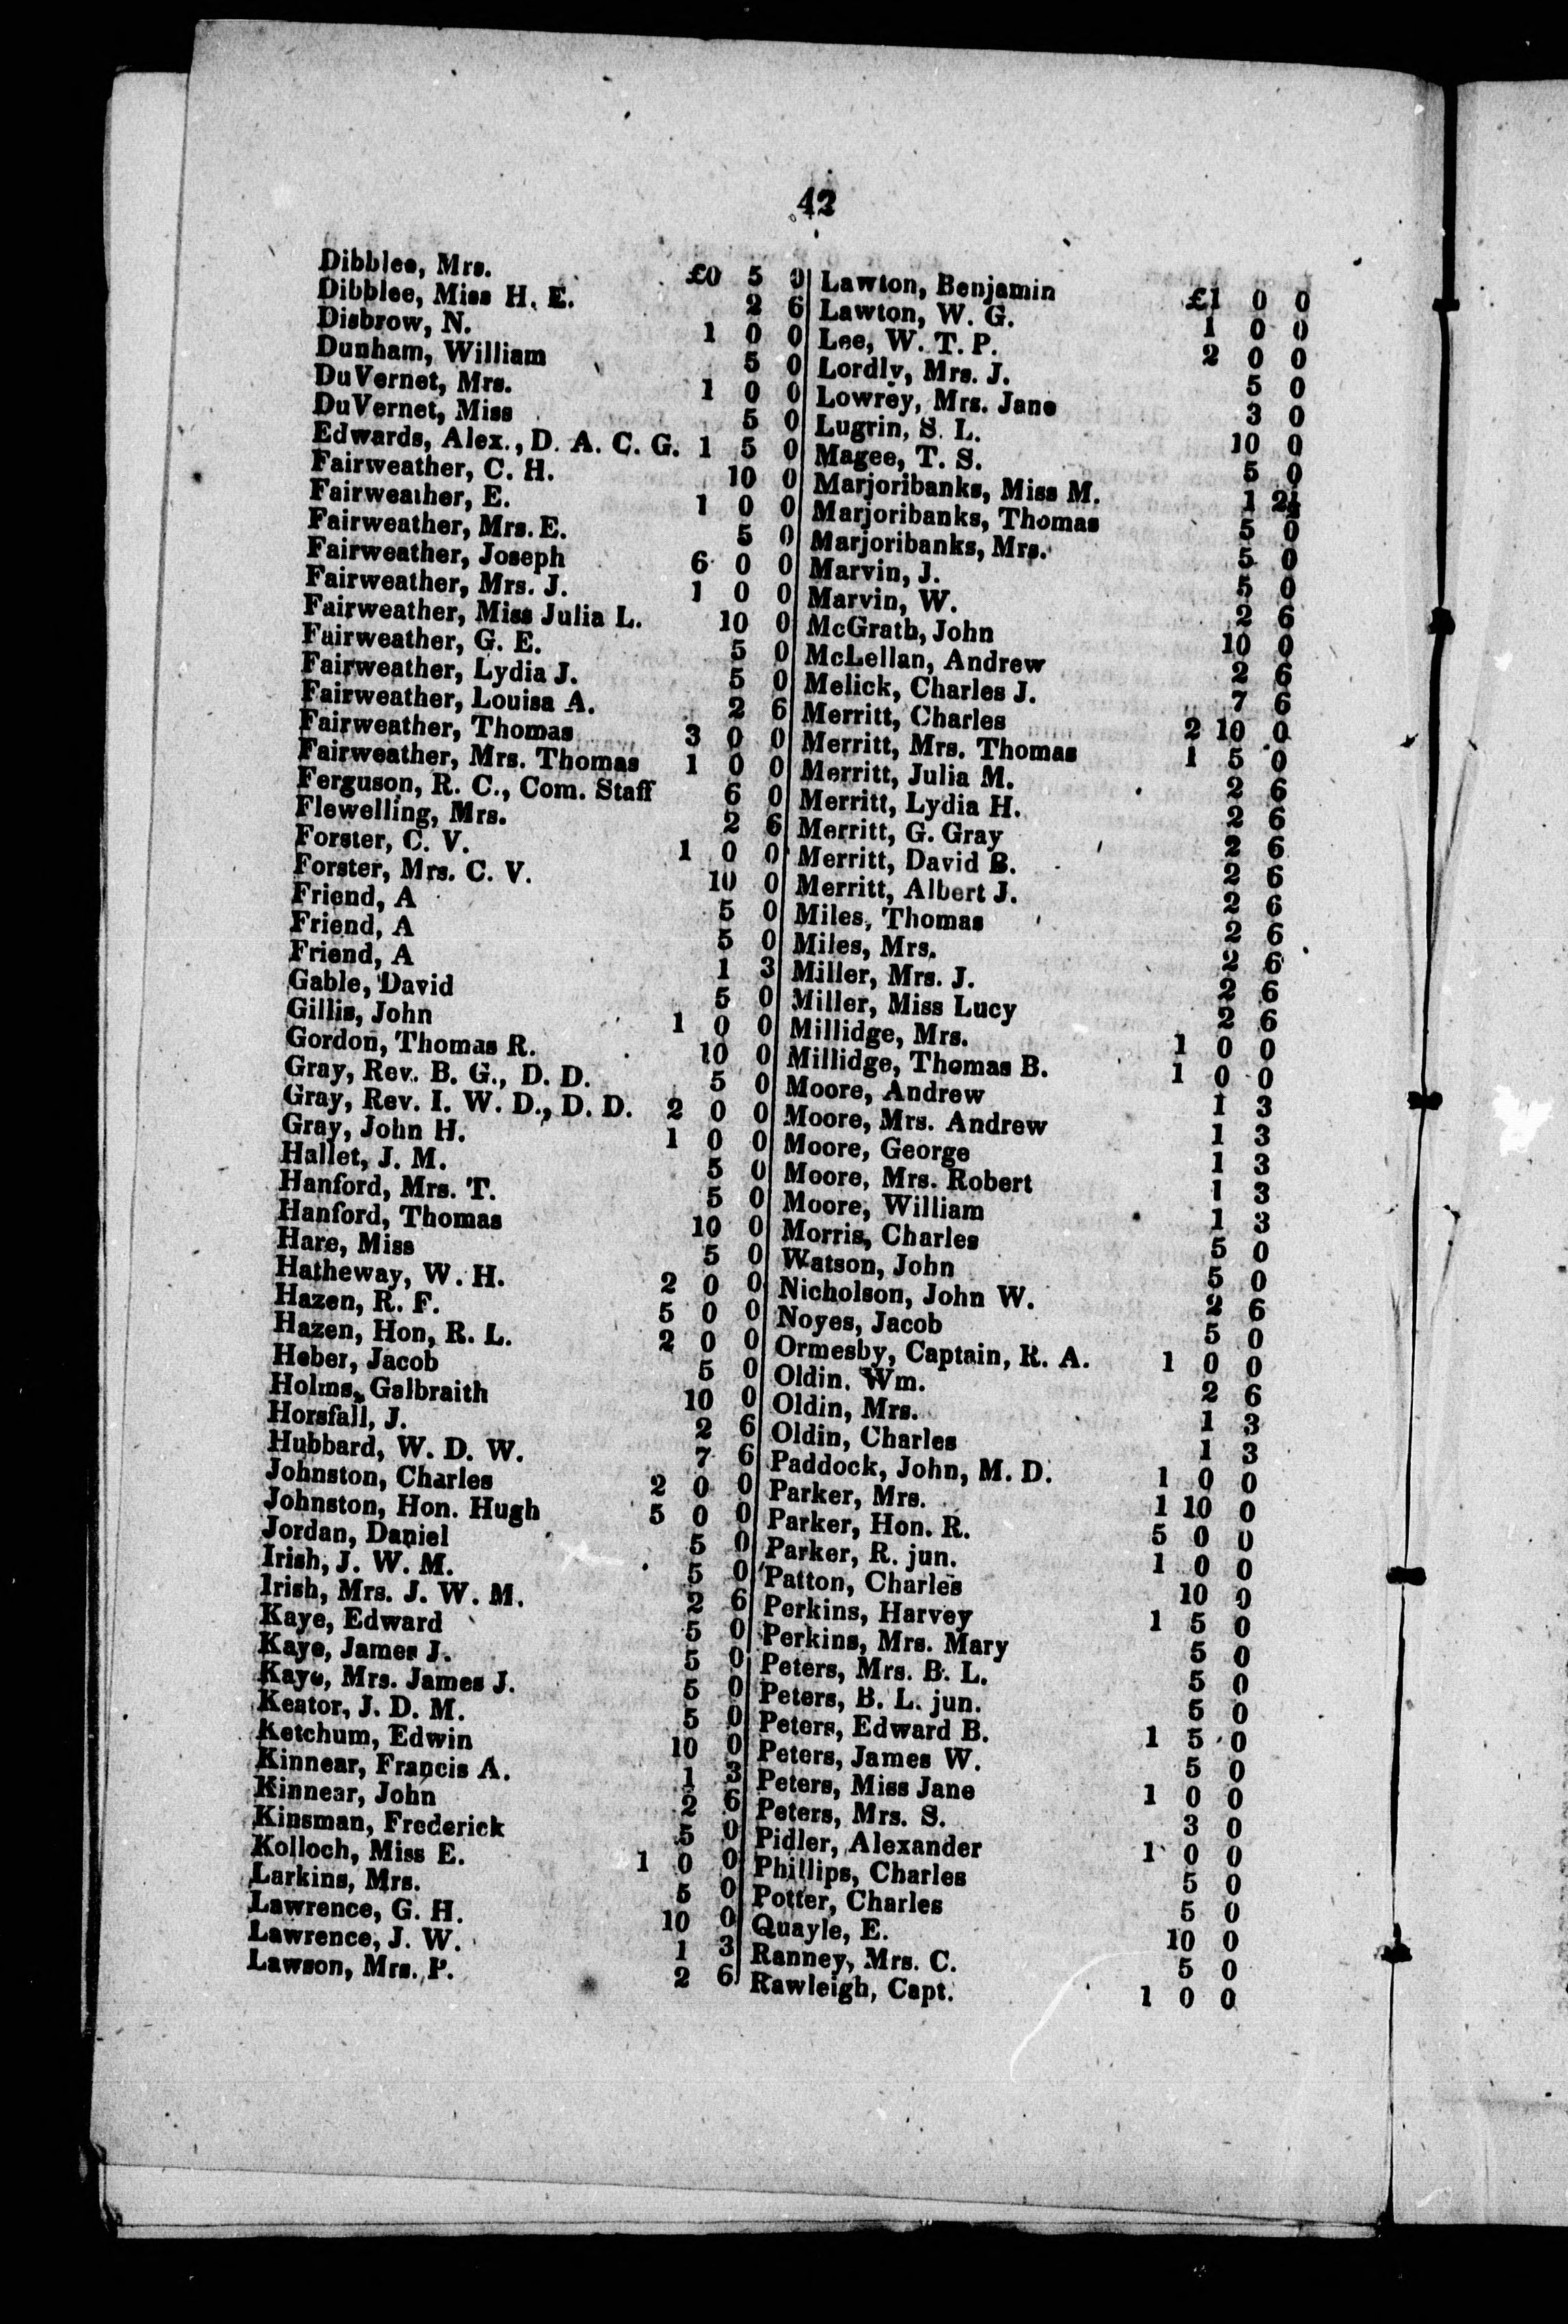 42
Dibblee, Mrs. £0 5 0
Dibblee, Miss H. E. 2 6
Disbrow, N. 1 0 0
Dunham, William 5 0
DuVernet, Mrs. 1 0 0
DuVernet, Miss 5 0
Edwards, Alex., D. A. C. G. 1 5 0
Fairweather, C. H. 10 0
Fairweather, E. 1 0 0
Fairweather, Mrs. E. 5 0
Fairweather, Joseph 6 0 0
Fairweather, Mrs. J. 1 0 0
Fairweather, Miss Julia L. 10 0
Fairweather, G. E. 5 0
Fairweather, Lydia J. 5 0
Fairweather, Louisa A. 2 6
Fairweather, Thomas 3 0 0
Fairweather, Mrs. Thomas 1 0 0
Ferguson, R. C., Com. Staff 6 0
Flewelling, Mrs. 2 6
Forster, C. V. 1 0 0
Forster, Mrs. C. V. 10 0
Friend, A 5 0
Friend, A 5 0
Friend, A 1 3
Gable, David 5 0
Gillis, John 1 0 0
Gordon, Thomas R. 10 0
Gray, Rev. B. G., D. D. 5 0
Gray, Rev. I. W. D., D. D. 2 0 0
Gray, John H. 1 0 0
Hallet, J. M. 5 0
Hanford, Mrs. T. 5 0
Hanford, Thomas 10 0
Hare, Miss 5 0
Hatheway, W. H. 2 0 0
Hazen, R. F. 5 0 0
Hazen, Hon, R. L. 2 0 0
Heber, Jacob 5 0
Holms, Galbraith 10 0
Horsfall, J. 2 6
Hubbard, W. D. W. 7 6
Johnston, Charles 2 0 0
Johnston, Hon. Hugh 5 0 0
Jordan, Daniel 5 0
Irish, J. W. M. 5 0
Irish, Mrs. J. W. M. 2 6
Kaye, Edward 5 0
Kaye, James J. 5 0
Kaye, Mrs. James J. 5 0
Keator, J. D. M. 5 0
Ketchum, Edwin 10 0
Kinnear, Francis A. 1 3
Kinnear, John 2 6
Kinsman, Frederick 5 0
Kolloch, Miss E. 1 0 0
Larkins, Mrs. 5 0
Lawrence, G. H. 10 0
Lawrence, J. W. 1 3
Lawson, Mrs. P. 2 6
Lawton, Benjamin £1 0 0
Lawton, W. G. 1 0 0
Lee, W. T. P. 2 0 0
Lordly, Mrs. J. 5 0
Lowrey, Mrs. Jane 3 0
Lugrin, S. L. 10 0
Magee, T. S. 5 0
Marjoribanks, Miss M. 1 2½
Marjoribanks, Thomas 5 0
Marjoribanks, Mrs. 5 0
Marvin, J. 5 0
Marvin, W. 2 6
McGrath, John 10 0
McLellan, Andrew 2 6
Melick, Charles J. 7 6
Merritt, Charles 2 10 0
Merritt, Mrs. Thomas 1 5 0
Merritt, Julia M. 2 6
Merritt, Lydia H. 2 6
Merritt, G. Gray 2 6
Merritt, David B. 2 6
Merritt, Albert J. 2 6
Miles, Thomas 2 6
Miles, Mrs. 2 6
Miller, Mrs. J. 2 6
Miller, Miss Lucy 2 6
Millidge, Mrs. 1 0 0
Millidge, Thomas B. 1 0 0
Moore, Andrew 1 3
Moore, Mrs. Andrew 1 3
Moore, George 1 3
Moore, Mrs. Robert 1 3
Moore, William 1 3
Morris, Charles 5 0
Watson, John 5 0
Nicholson, John W. 2 6
Noyes, Jacob 5 0
Ormesby, Captain, R. A. 1 0 0
Oldin. Wm. 2 6
Oldin, Mrs. 1 3
Oldin, Charles 1 3
Paddock, John, M. D. 1 0 0
Parker, Mrs. 1 10 0
Parker, Hon. R. 5 0 0
Parker, R. jun. 1 0 0
Patton, Charles 10 0
Perkins, Harvey 1 5 0
Perkins, Mrs. Mary 5 0
Peters, Mrs. B. L. 5 0
Peters, B. L. jun. 5 0
Peters, Edward B. 1 5 0
Peters, James W. 5 0
Peters, Miss Jane 1 0 0
Peters, Mrs. S. 3 0
Pidler, Alexander 1 0 0
Phillips, Charles 5 0
Potter, Charles 5 0
Quayle, E. 10 0
Ranney, Mrs. C. 5 0
Rawleigh, Capt. 1 0 0